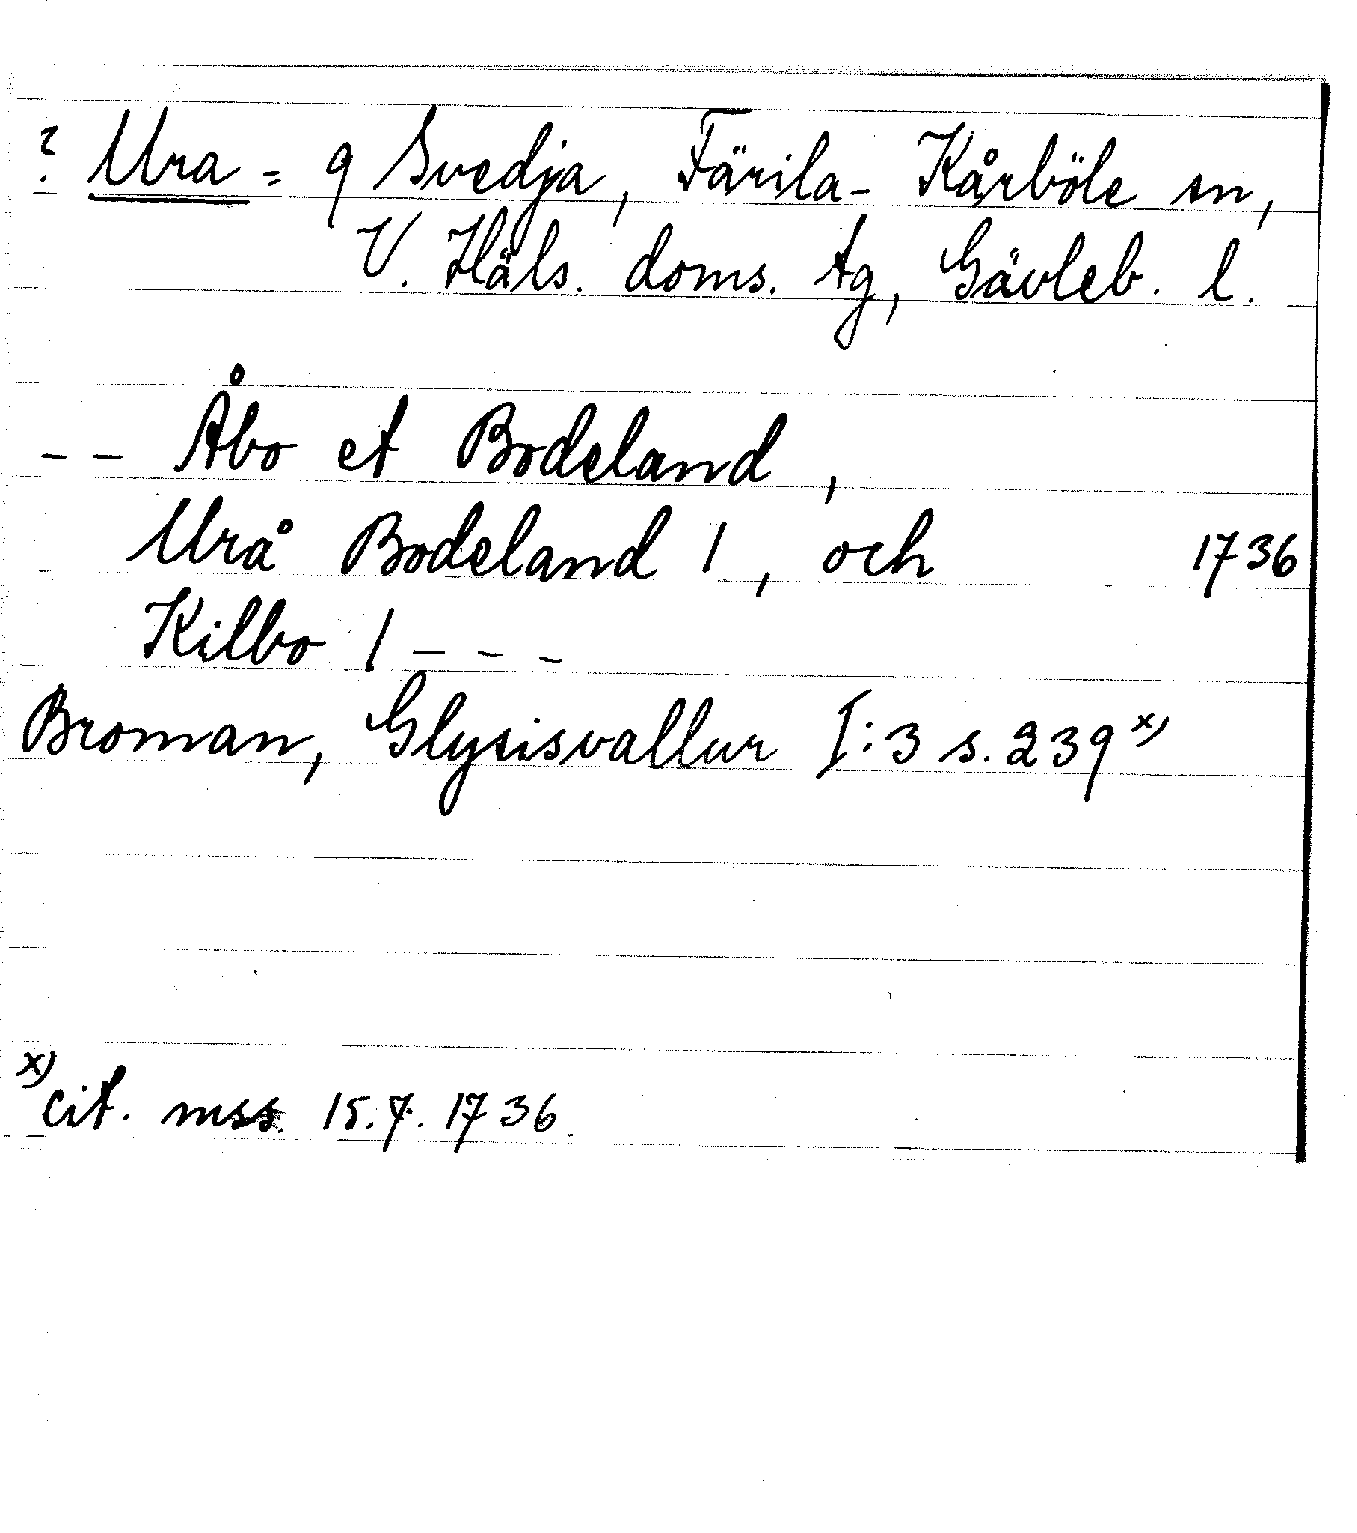 ? Ura = g Svedja, Färila-Kårböle sn,
V. Häls. doms. tg, Gävleb. l.
-- Åbo et Bodeland,
Urå Bodeland 1, och 1736
Kilbo 1 ---
Broman, Glysisvallur I:3 s. 239 x)
x) cit. mss 15.7.1736.